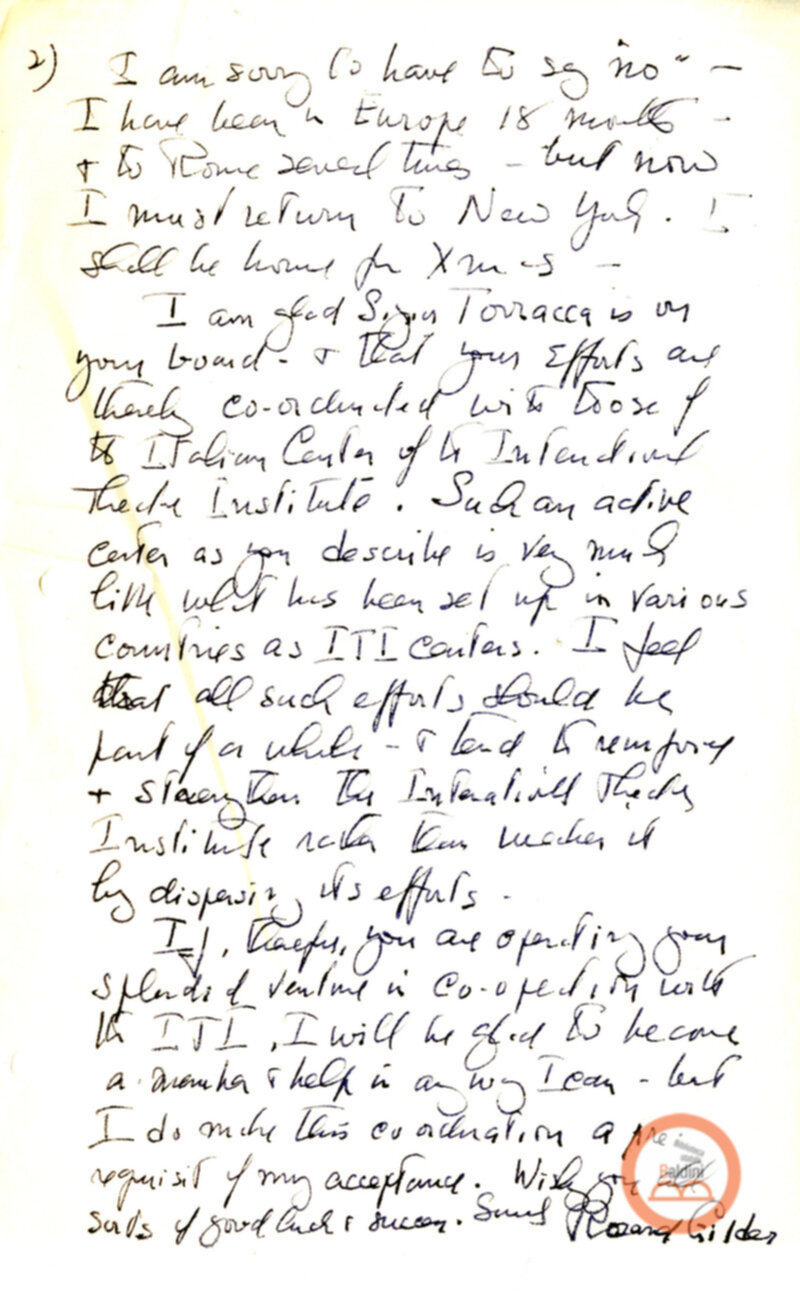 2) I am sorry to have to say "no" -
I have been in Europe 18 months -
+ to Rome several times - but now
I must return to New York. I
shall be home for Xmas -
I am glad Signor Torracca is on
your board - + that your efforts are
thereby co-ordinated with those of
the Italian Center of the International
Theatre Institute. Such an active
center as you describe is very much
like what has been set up in various
countries as ITI centers. I feel
that all such efforts should be
part of a whole - + tend to reinforce
+ strengthen the International Theatre
Institute rather than weaken it
by dispersing its efforts -
If, therefore, you are operating your
splendid venture in co-operation with
the ITI, I will be glad to become
a member & help in any way I can - but
I do make this coordination a pre-
requisit of my acceptance. Wish you all
sorts of good luck & success. Rosamond Gilder
Biblioteca
Baldini